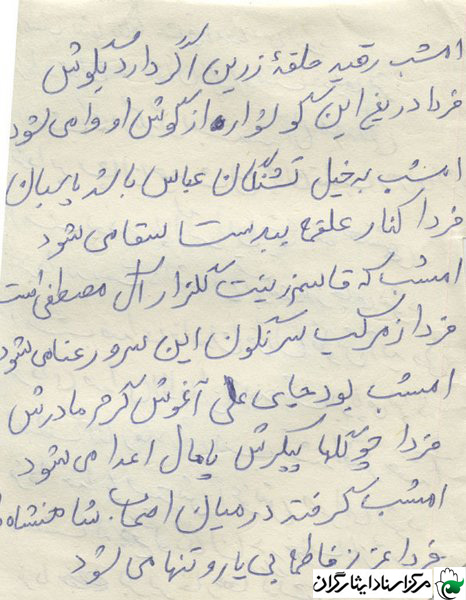 امشب رقیه حلقهٔ زرین اگر دارد بگوش
فردا دریغ این گوشواره از گوش او وا می شود
امشب به خیل تشنگان عباس باشد پاسبان
فردا کنار علقمه بیدست سقا می شود
امشب که قاسم زینت گلزار آل مصطفی است
فردا ز مرکب سرنگون این سرو رعنا می شود
امشب بود جای علی آغوش گرم مادرش
فردا چو گلها پیکرش پامال اعدا می شود
امشب گرفته در میان اصحاب شاهنشاه
فردا عزیز فاطمه بی یار و تنها می شود
مرکز اسناد ایثارگران